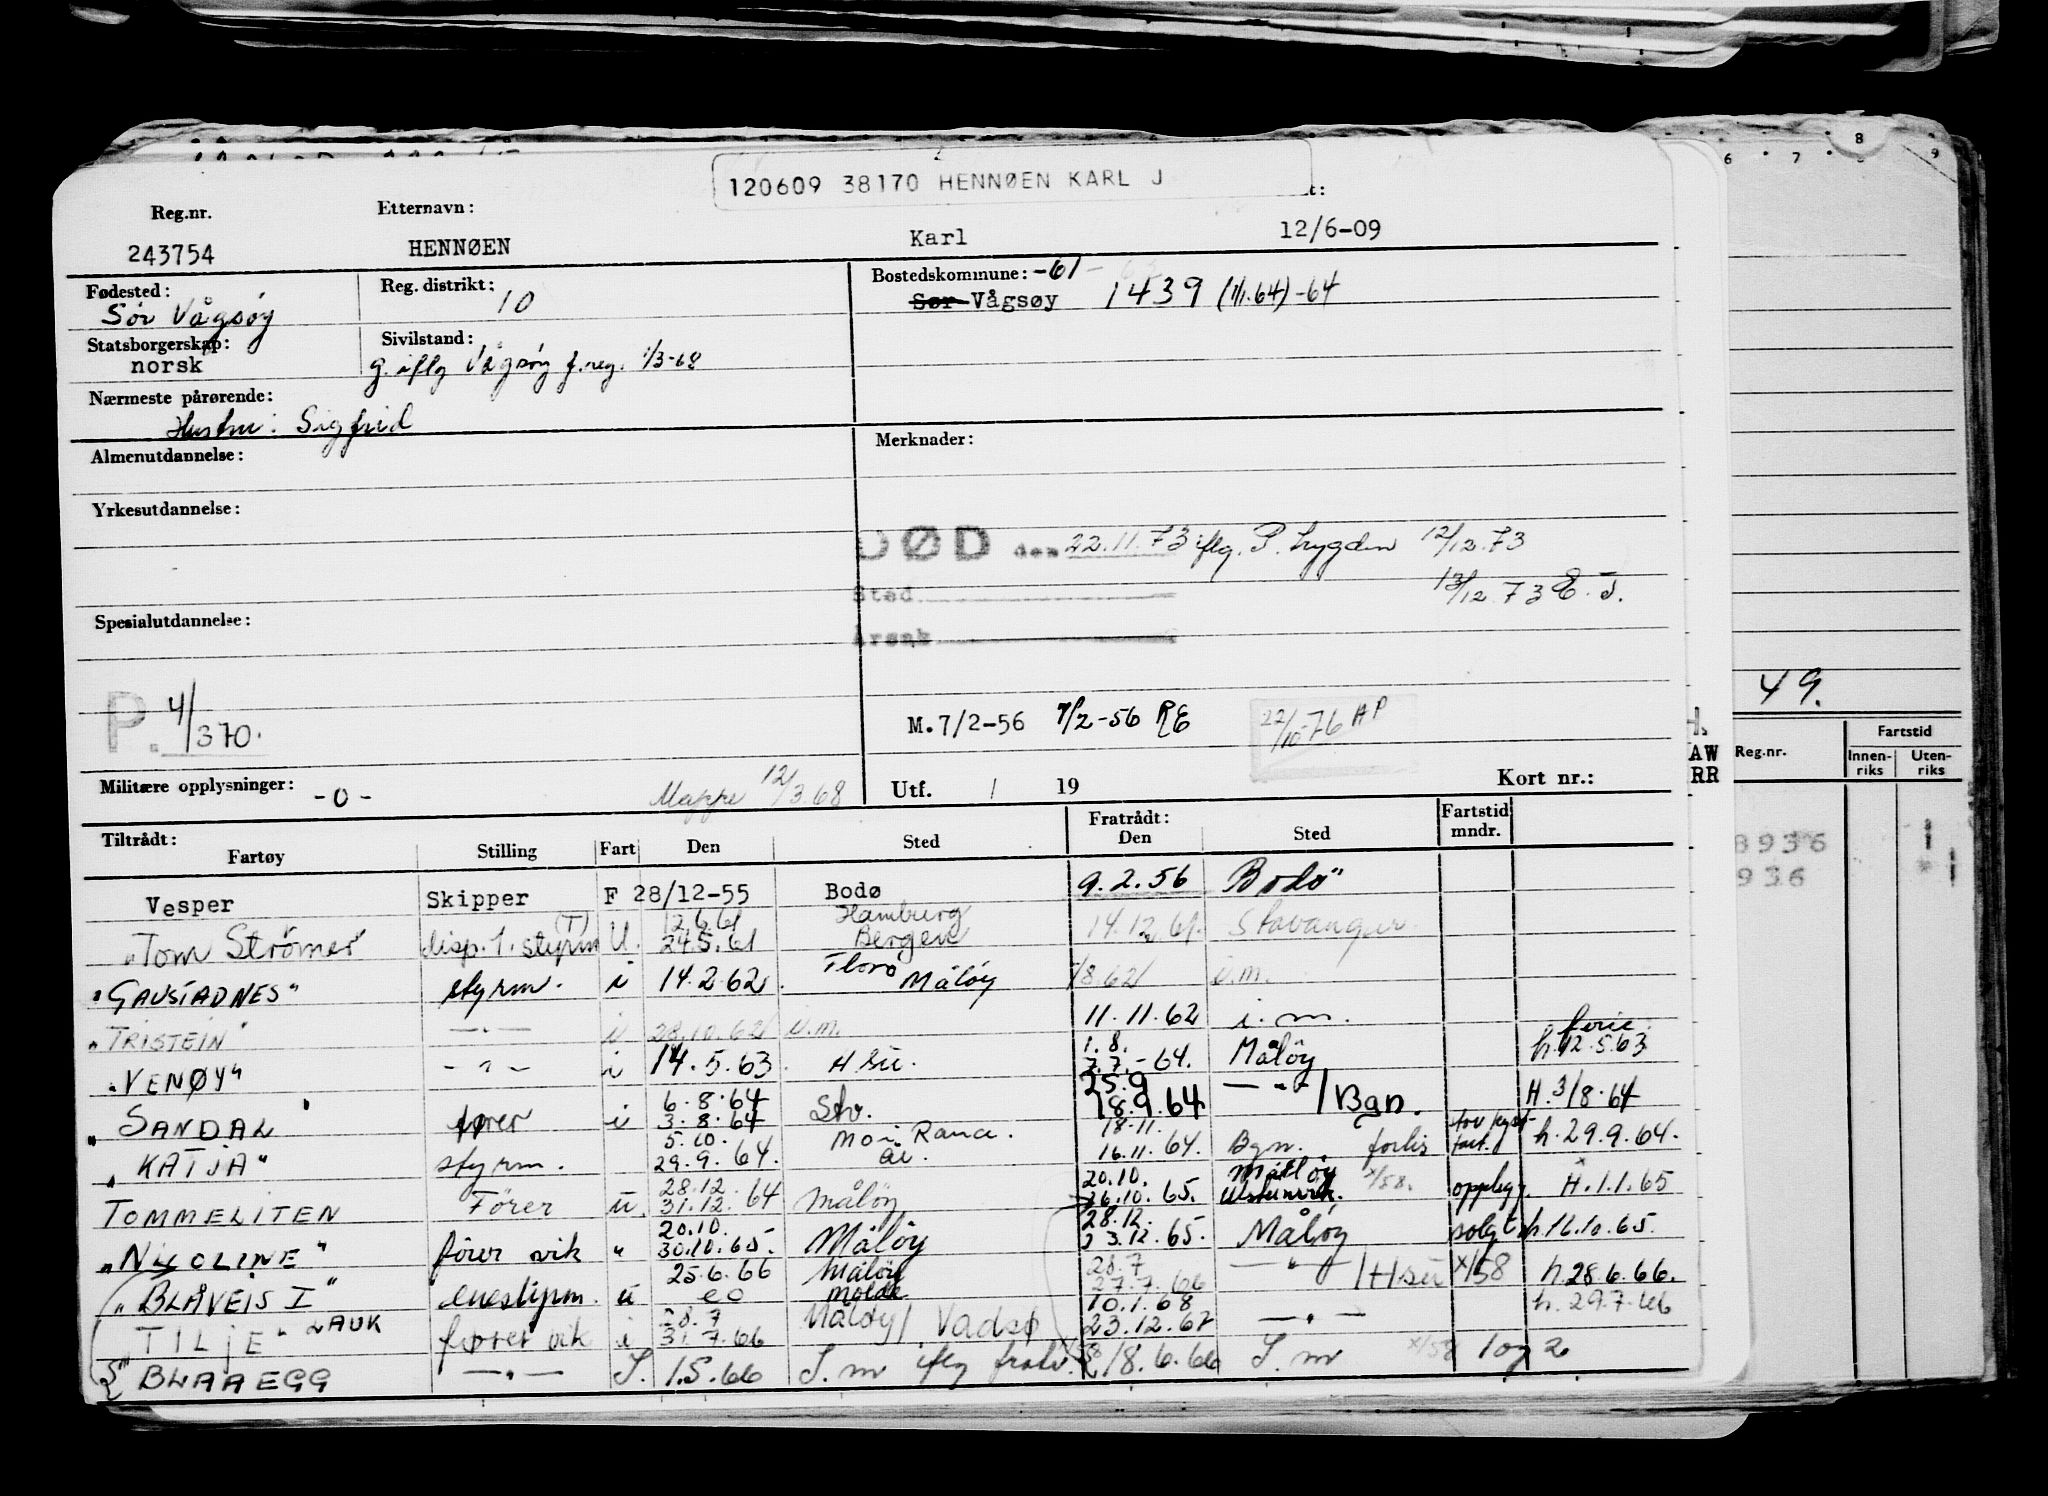 120609 38170 HENNØEN KARL J
Reg.nr. Etternavn:
243754 HENNØEN Karl 12/6-09
Fødested: Reg. distrikt: Bostedskommune: -61-
Sör Vågsøy 10 Sør Vågsøy 1439 (1/1.64)-64
Statsborgerskap: Sivilstand:
norsk g. iflg Vågsøy f.reg. 1/3-68
Nærmeste pårørende:
Hustru: Sigfrid
Almenutdannelse: Merknader:
Yrkesutdannelse:
DØD den 22.11.73 iflg. P. trygden 12/12.73
Sted 13/12.73 E.J.
Spesialutdannelse: Årsak
P. 4/370.
M.7/2-56 7/2-56 RE 22/10-76 AP
Militære opplysninger: -0- Mappe 12/3.68 Utf. / 19 Kort nr.:
Tiltrådt: Fratrådt: Fartstid
Fartøy Stilling Fart Den Sted Den Sted mndr.
Vesper Skipper F 28/12-55 Bodø 9.2.56 Bodö
(T) 12.6.61 Hamburg
"Tom Strömer" disp. 1. styrm U. 24.5.61 Bergen 14.12.61. Stavanger.
"GAUSTADNES" styrm. i 14.2.62. Florø Måløy 1/8.62 i.m.
"TRISTEIN" —"— i 28.10.62 i.m. 11.11.62 i.m.
1.8. ferie
"VENØY" -"- i 14.5.63. H su. 7.7.-64. Måløy h.12.5.63
6.8.64 25.9
"SANDAL" fører i 3.8.64 Stv. 18.9.64 —"—/Bgn. H.3/8.64
5.10. Mo i Rana. 18.11.
"KATJA" styrm. 29.9.64. 16.11.64. Bgn. forlis h.29.9.64.
28.12. 20.10. Måløy x/58.
TOMMELITEN Förer u. 31.12.64 Måløy 26.10.65. Ulsteinvik. opplegg. H.1.1.65
20.10. 28.12.
"NICOLINE" förer vik " 30.10.65. Måløy 23.12.65. Måløy solgt h.16.10.65.
25.6.66 Måløy 28.7
"BLÅVEIS I" enestyrm. u Molde 27.7.66 —"—/H su x/58 h.28.6.66.
28.7 10.1.68 h.29.7.66
"TILJE" fører vik i 31.7.66 Måløy/Vadsø 23.12.67 —"—
"BLAAEGG —"— S. 1.5.66 S.m iflg 18.6.66 S.m x/58 1 og 2
49.
Reg.nr. Fartstid
Innen-riks Uten-riks
8936
936
AW
RR
6 7 8 9
8